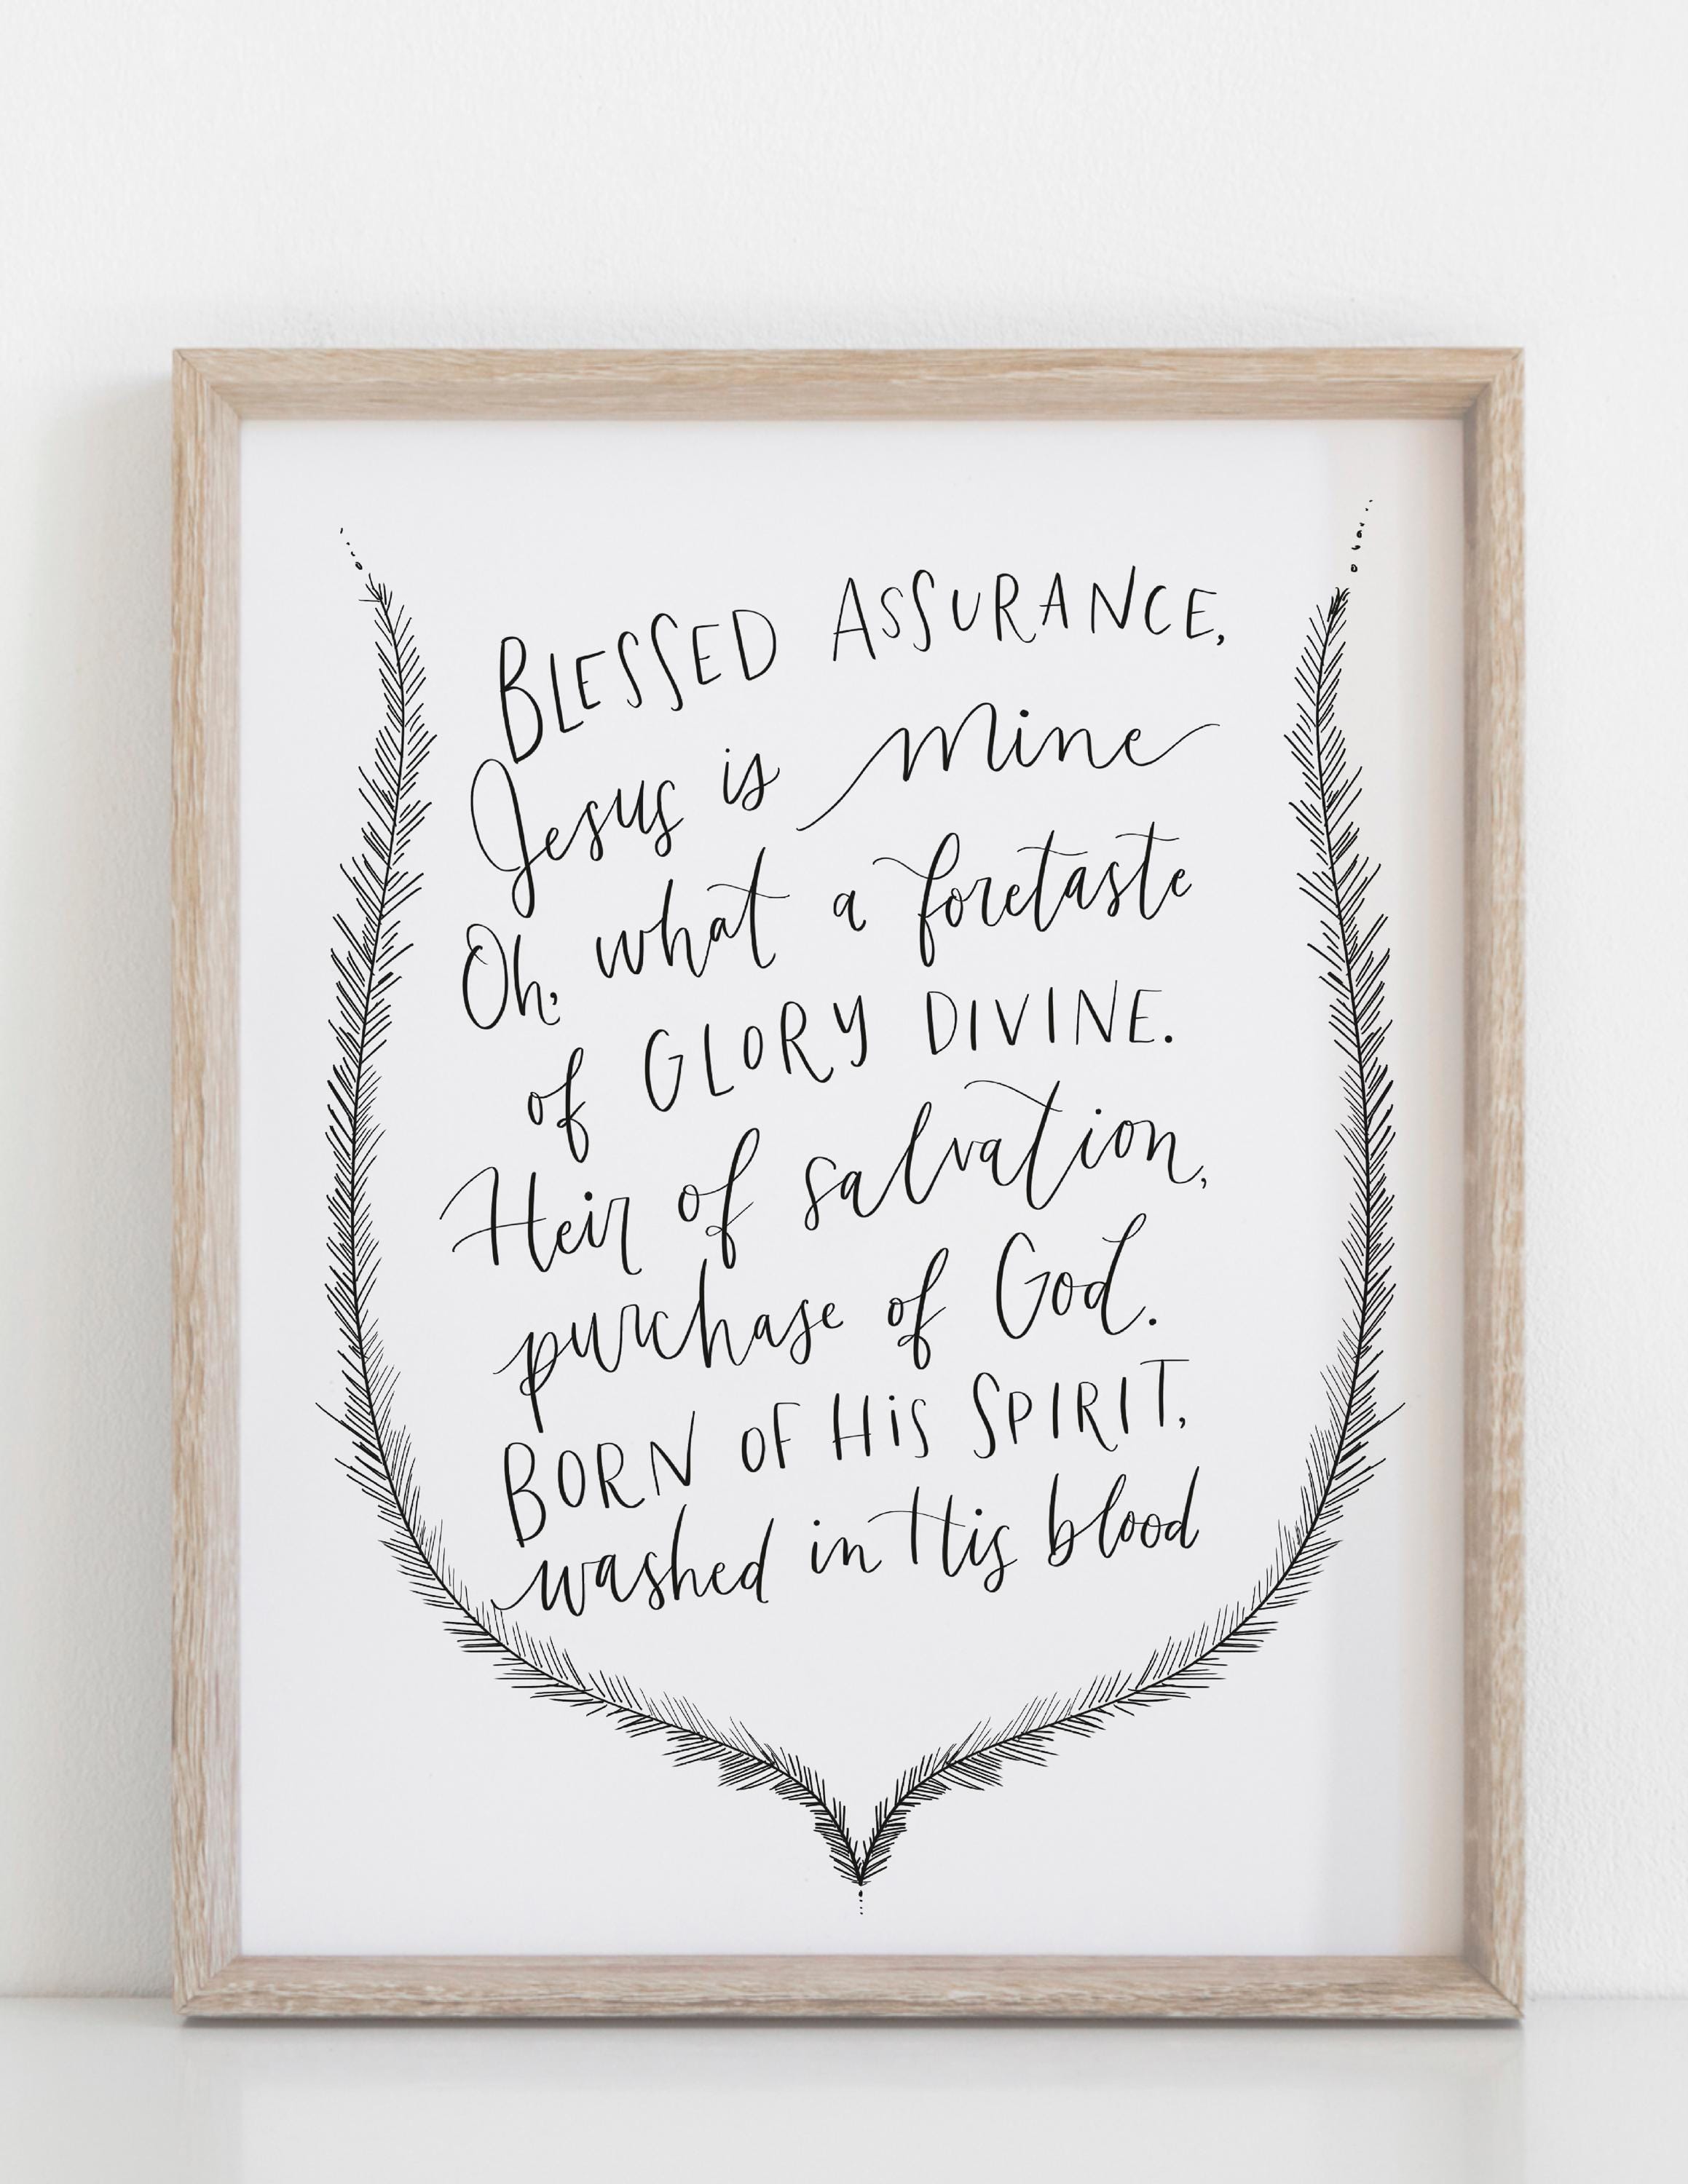 BLESSED ASSURANCE,
Jesus is mine
Oh, what a foretaste
of GLORY DIVINE.
Heir of salvation,
purchase of God.
BORN OF HiS SPIRIT,
washed in His blood